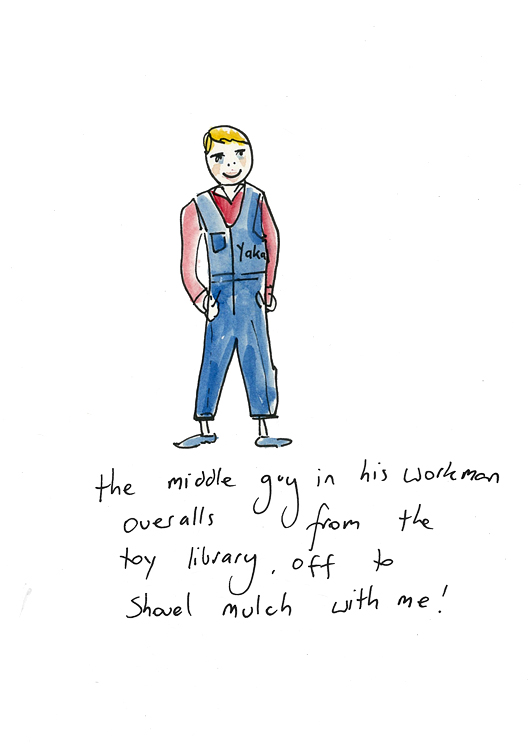 Yaka
the middle guy in his workman
overalls from the
toy library, off to
Shovel mulch with me!